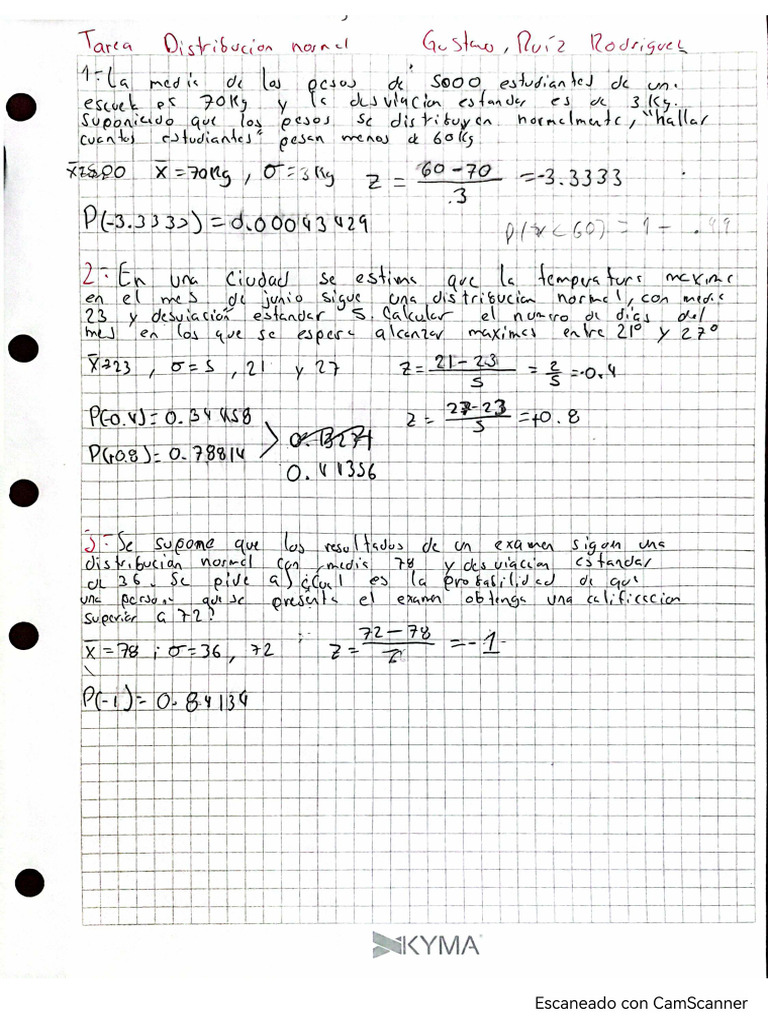 Tarea Distribucion normal Gustavo, Ruíz Rodriguez
1-La media de los pesos de 5000 estudiantes de un
escuel es 70Kg y la desviacion estander es de 3 Kg.
suponiendo que los pesos se distribuyen normelmente, "hallar
cuantos estudiantes" pesan menos de 60Kg
x̄ = 70Kg , σ = 3Kg z = 60-70 / 3 = -3.3333
P(-3.3333) = 0.00043429
P(x<60) = 1 - .99
2- En una ciudad se estima que la temperatura maxima
en el mes de junio sigue una distribucion normal, con media
23 y desviación estandar 5. Calcular el numero de dias del
mes en los que se espera alcanzar maximas entre 21° y 27°
x̄=23 , σ=5 , 21 y 27 z = 21-23 / 5 = 2/5 = -0.4
P(-0.4) = 0.34458 z = 27-23 / 5 = +0.8
P(+0.8) = 0.78814
0.44356
3- Se supone que los resultados de un examen sigan una
distribución normal con media 78 y desviacion estandar
de 36. Se pide a) ¿cual es la probabilidad de que
una persona que se presenta el examen obtenga una calificacion
superior a 72?
x̄ = 78 ; σ = 36 , 72 z = 72-78 / = -1
P(-1) = 0.84134
KYMA
Escaneado con CamScanner